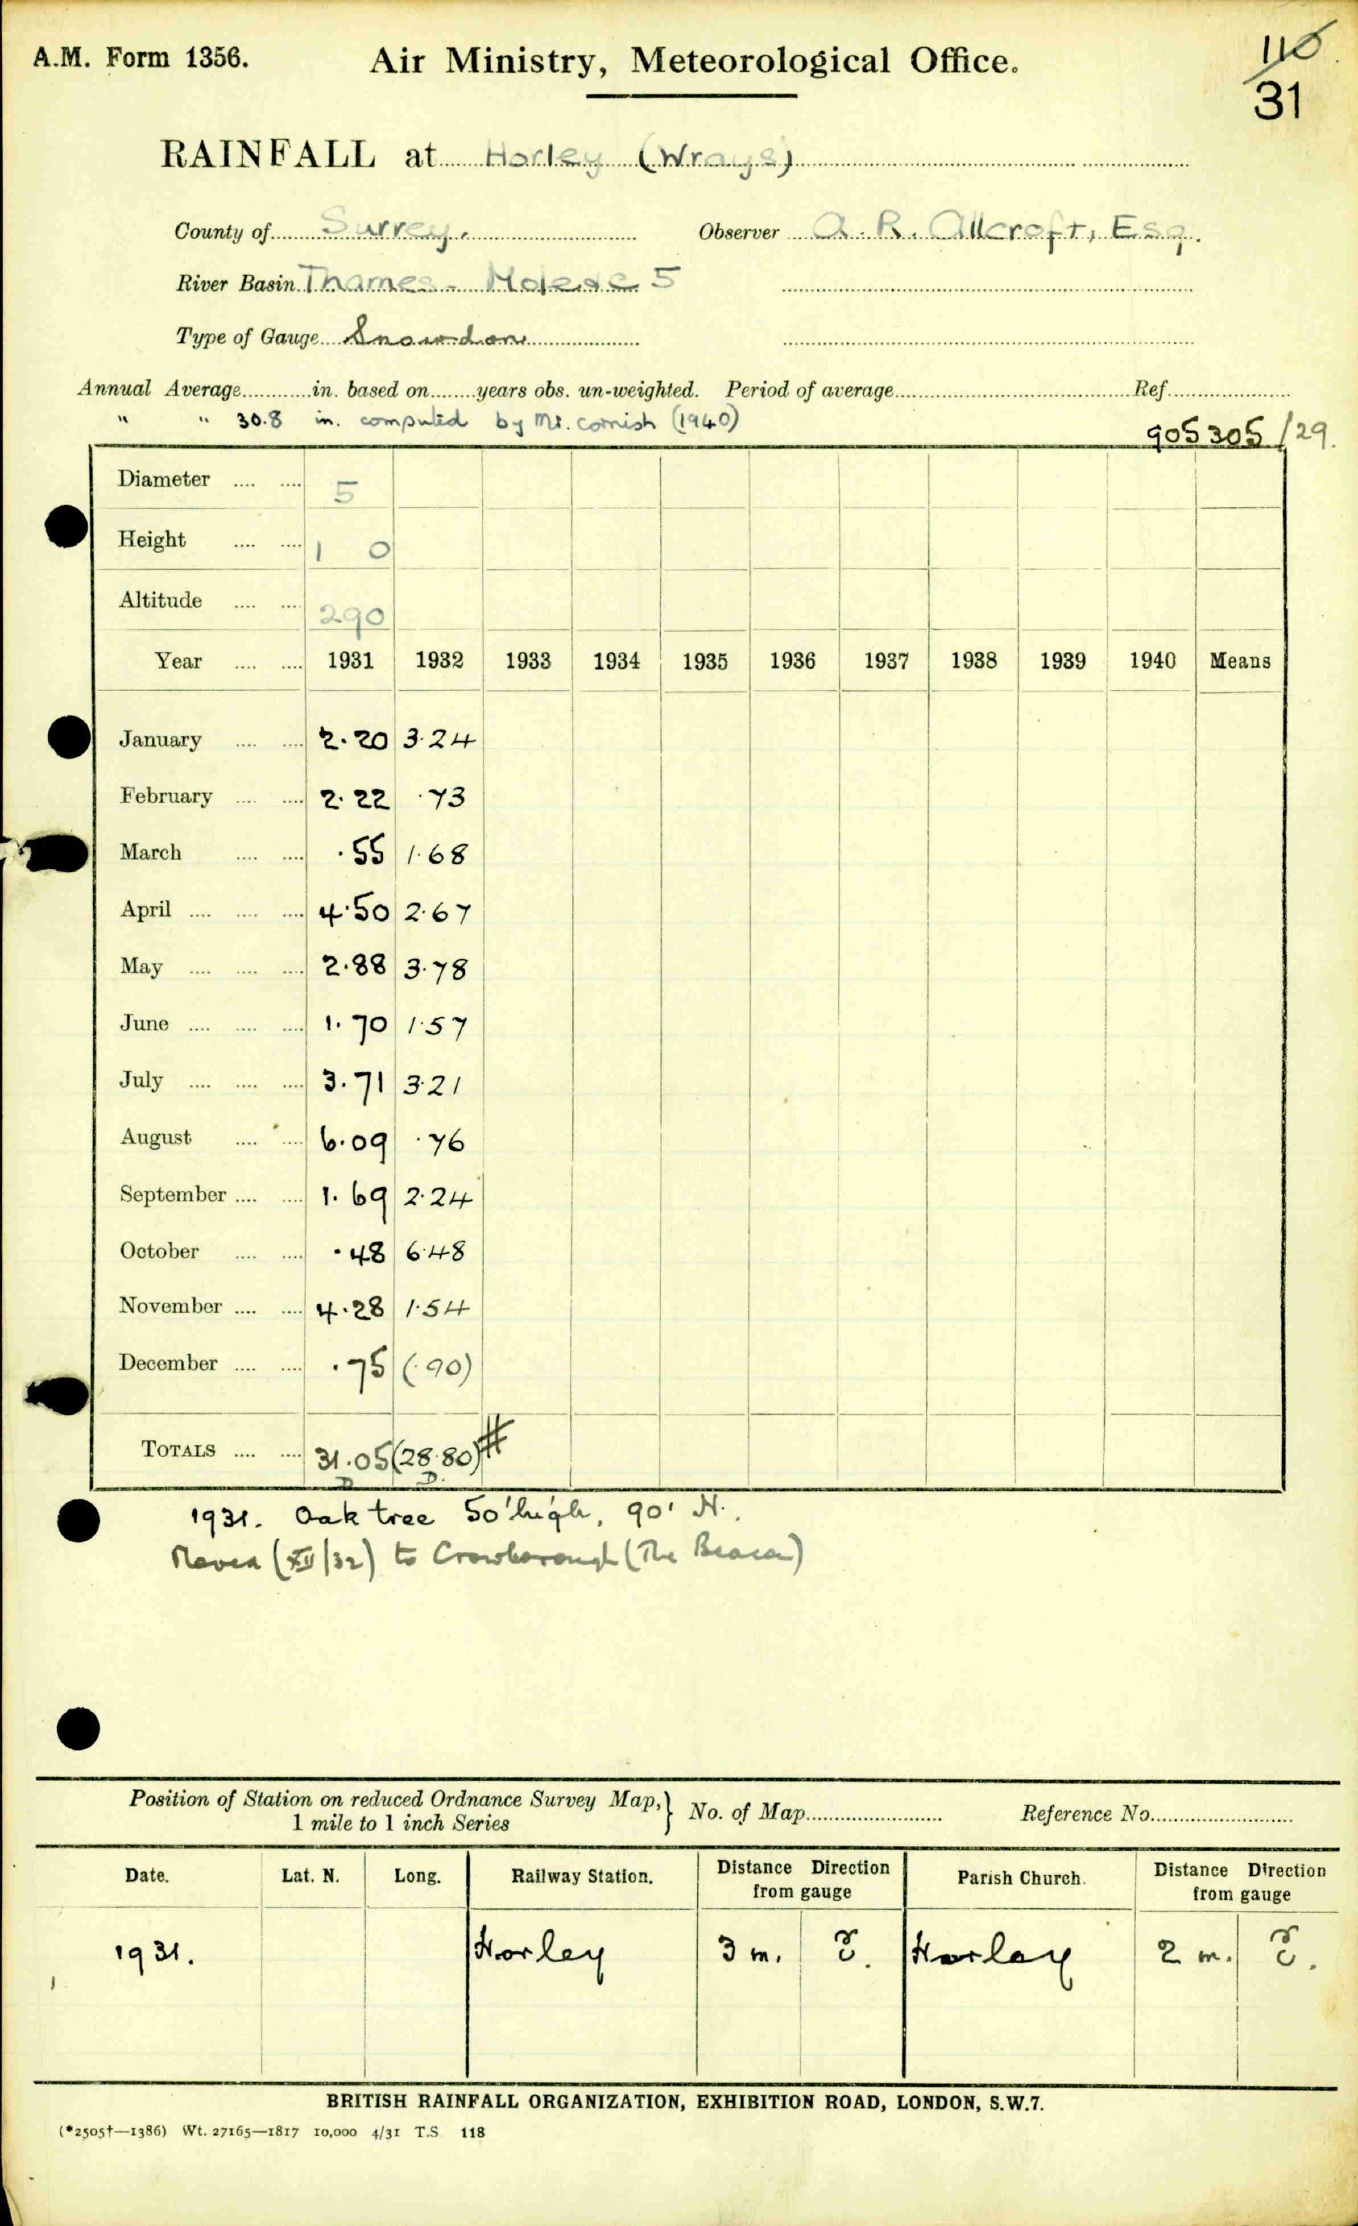 A.M. Form 1356. Air Ministry, Meteorological Office. 110
31
RAINFALL at Horley (Wrays)
County of Surrey. Observer A. R. Allcroft, Esq.
River Basin Thames - Mole 5
Type of Gauge Snowdon
Annual Average in. based on years obs. un-weighted. Period of average Ref.
" " 30.8 in. computed by Mr. Cornish (1940)
905305/29.
Diameter .... .... 5
Height .... .... 1 0
Altitude .... .... 290
Year .... .... 1931 1932 1933 1934 1935 1936 1937 1938 1939 1940 Means
January .... .... 2.20 3.24
February .... .... 2.22 .73
March .... .... .55 1.68
April .... .... .... 4.50 2.67
May .... .... .... 2.88 3.78
June .... .... .... 1.70 1.57
July .... .... .... 3.71 3.21
August .... .... 6.09 .76
September .... .... 1.69 2.24
October .... .... .48 6.48
November .... .... 4.28 1.54
December .... .... .75 (.90)
TOTALS .... .... 31.05 (28.80) #
D D.
1931. Oak tree 50' high, 90' N.
Moved (XII/32) to Crowborough (The Beacon)
Position of Station on reduced Ordnance Survey Map, } No. of Map Reference No.
1 mile to 1 inch Series
Date. Lat. N. Long. Railway Station. Distance Direction from gauge Parish Church. Distance Direction from gauge
1931. Horley 3 m. E. Horley 2 m. E.
BRITISH RAINFALL ORGANIZATION, EXHIBITION ROAD, LONDON, S.W.7.
(*2505†—1386) Wt. 27165—1817 10,000 4/31 T.S. 118